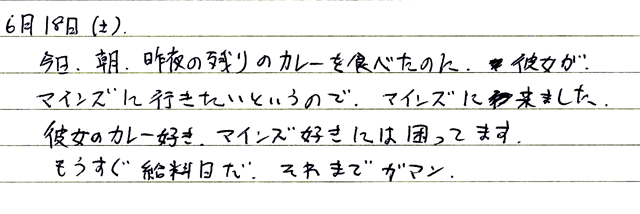 6月18日(土).
今日、朝、昨夜の残りのカレーを食べたのに、彼女が
マインズに行きたいというので、マインズに来ました。
彼女のカレー好き、マインズ好きには困ってます。
もうすぐ給料日だ。それまでガマン。